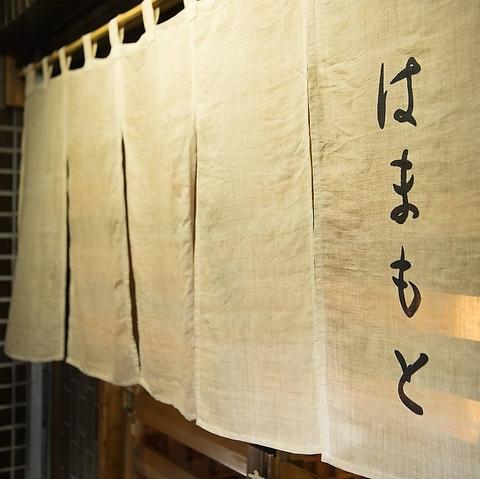 はまもと